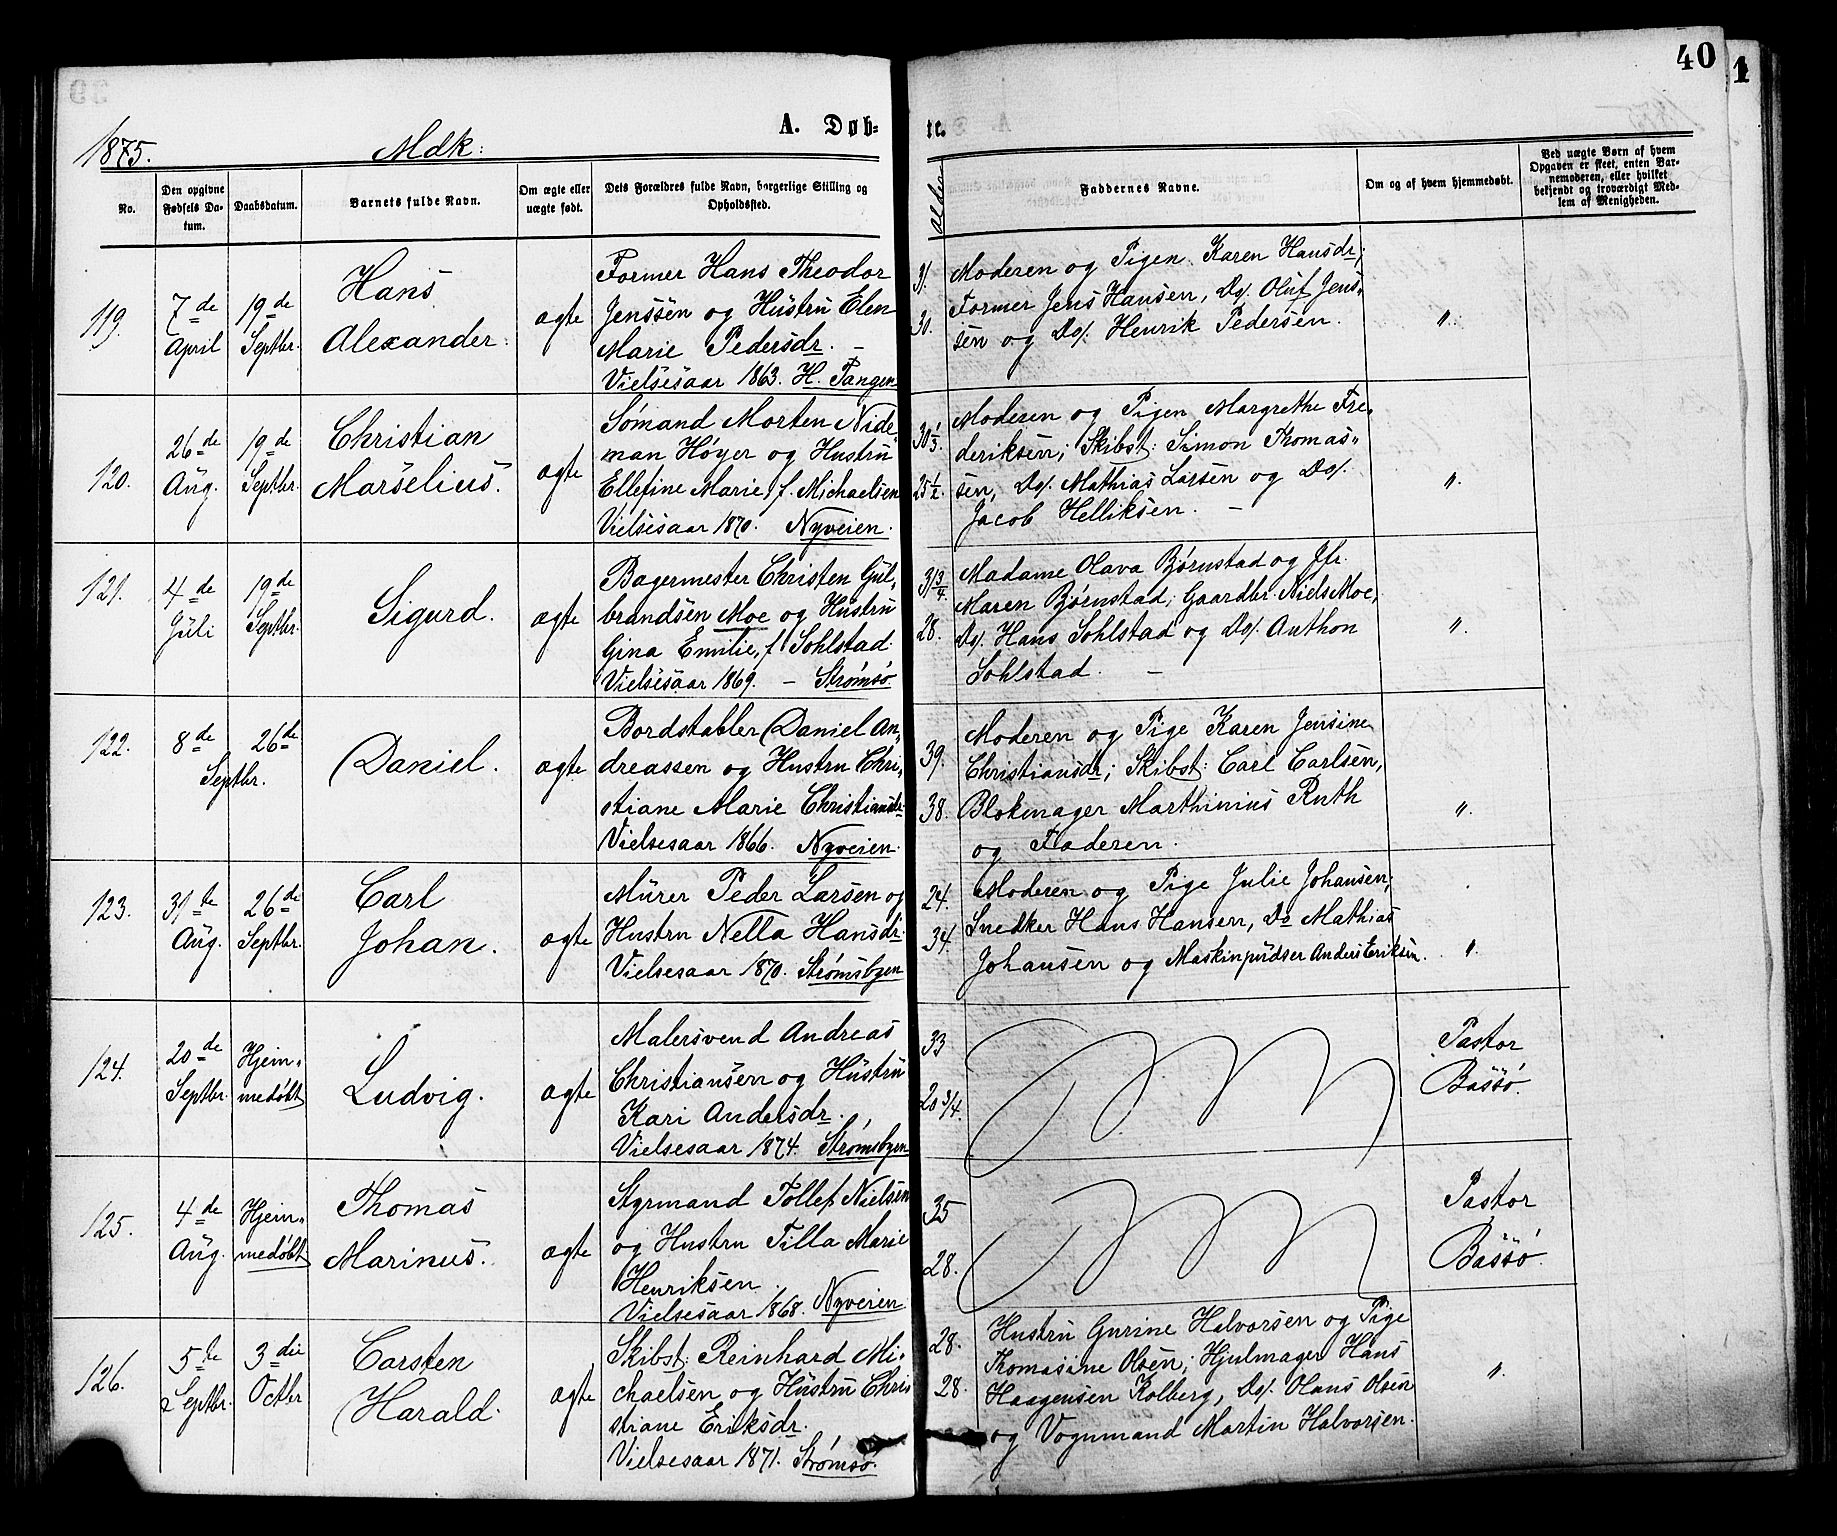 40
1
1875.
Mdk:
A. Døb-
te.
No.
Den opgivne
Fødsels Da-
tum.
Daabsdatum.
Barnets fulde Navn.
Om ægte eller
uægte født.
Dets Forældres fulde Navn, borgerlige Stilling og
Opholdssted.
Alder
Faddernes Navne.
Om og af hvem hjemmedøbt.
Ved uægte Børn af hvem
Opgaven er skeet, enten Bar-
nemoderen, eller hvilket
bekjendt og troværdigt Med-
lem af Menigheden.
119.
7de
April
19de
Septbr.
Hans
Alexander.
ægte
Former Hans Theodor
Jenssen og Hustru Elen
Marie Pedersdr. –
Vielsesaar 1863. H. Tangen
31.
30.
Moderen og Pigen Karen Hansdr;
Former Jens Hansen, Do/. Oluf Jens-
sen og Do/. Henrik Pedersen.
"
120.
26de
Aug.
19de
Septbr.
Christian
Marselius.
ægte
Sømand Morten Nide-
man Høyer og Hustru
Ellefine Marie, f. Michaelsen
Vielsesaar 1870. Nyveien.
30 1/3.
25 1/2.
Moderen og Pigen Margrethe Fre-
deriksen; Skibst: Simon Thomas-
sen, Do/. Mathias Larsen og Do/.
Jacob Helliksen. –
"
121.
4de
Juli
19de
Septbr.
Sigurd.
ægte
Bagermester Christen Gul-
brandsen Moe og Hustru
Gina Emilie, f Sohlstad
Vielsesaar 1869. – Strømsø
31 3/4
28.
Madame Olava Bjørnstad og Jfr.
Maren Bjørnstad; Gaardbr. Niels Moe,
Do/. Hans Sohlstad og Do/. Anthon
Sohlstad. –
"
122.
8de
26de
Septbr.
Daniel.
ægte
Bordstabler Daniel An-
dreassen og Hustru Chri-
stiane Marie Christiansdr
Vielsesaar 1866. Nyveien.
39.
38.
Moderen og Pige Karen Jensine
Christiansdr; Skibst: Carl Carlsen,
Blokmager Marthinius Ruth
og Faderen.
"
123.
31te
Aug.
26de
Septbr.
Carl
Johan.
ægte
Murer Peder Larsen og
Hustru Nella Hansdr.
Vielsesaar 1870. Strømsbyen
24.
34.
Moderen og Pige Julie Johansen;
Snedker Hans Hansen, Do Mathias
Johansen og Maskinpudser Anders Eriksen.
"
124.
20de
Septbr.
Hjem-
medøbt
Ludvig.
ægte
Malersvend Andreas
Christiansen og Hustru
Kari Andersdr.
Vielsesaar 1874. Strømsbyen
33
20 3/4.
Pastor
Bassø.
125.
4de
Aug.
Hjem-
medøbt
Thomas
Marinus.
ægte
Styrmand Tollef Nielsen
og Hustru Tilla Marie
Henriksen.
Vielsesaar 1868. Nyveien
35
28.
Pastor
Bassø.
126.
5te
Septbr.
3die
Octbr
Carsten
Harald.
ægte
Skibst: Reinhard Mi-
chaelsen og Hustru Chris
stiane Eriksdr.
Vielsesaar 1871. Strømsø.
28.
28.
Hustru Gurine Halvorsen og Pige
Thomasine Olsen; Hjulmager Hans
Haagensen Kolberg, Do/. Hans Olsen
og Vognmand Martin Halvorsen.
"